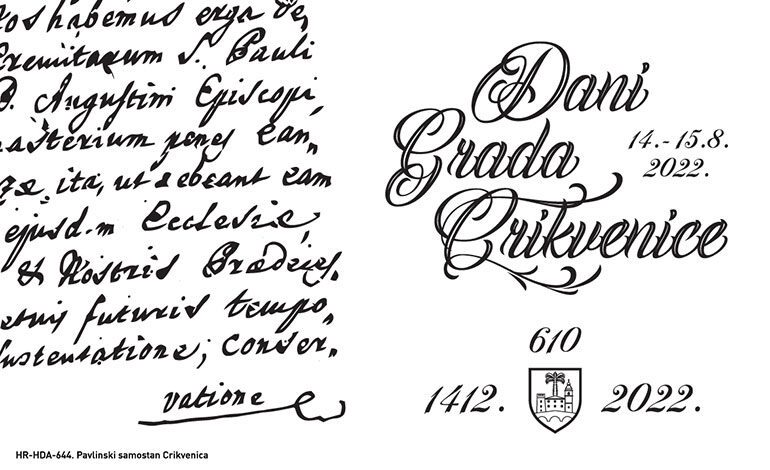 habemus erga
Eremitarum S. Pauli
D. Augustini Episcopi
penes Ean,
ita, ut debeant eam
ejusd.m Ecclesiæ,
& Nostris Prædeces,
futuris tempo,
sustentatione, conser,
vatione
HR-HDA-644. Pavlinski samostan Crikvenica
Dani
Grada
Crikvenice
14.-15.8.
2022.
610
1412. 2022.